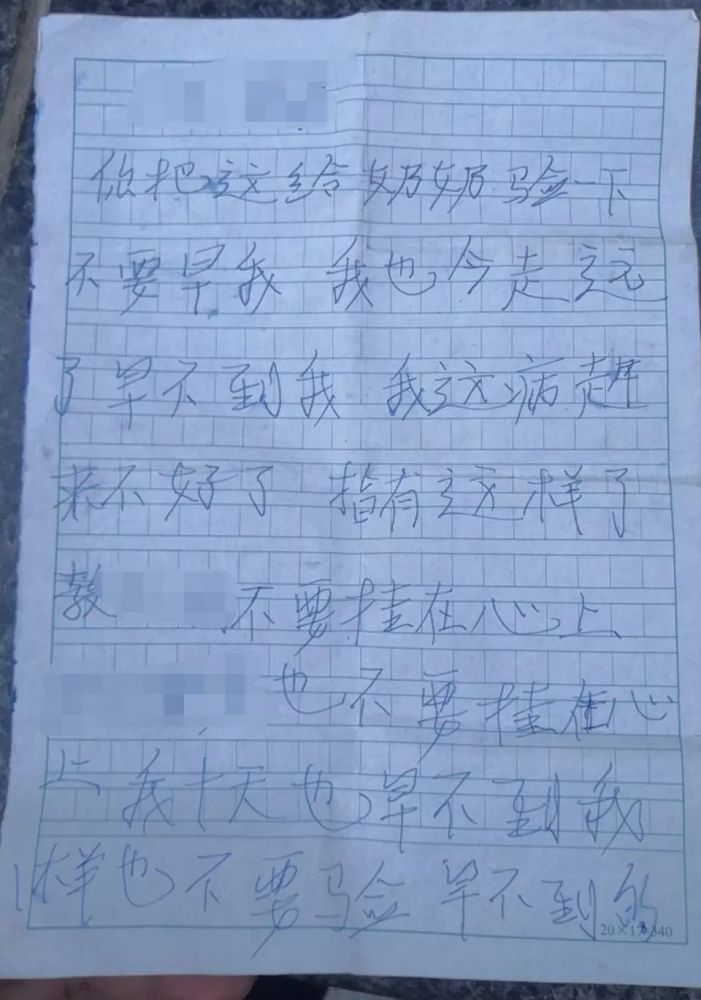 你把这给奶奶验一下
不要早我 我也今走远
了早不到我 我这病赶
来不好了 指有这样了
教 不要挂在心上
也不要挂在心
上我十天也早不到我
样也不要验 早不到的
20×17=340